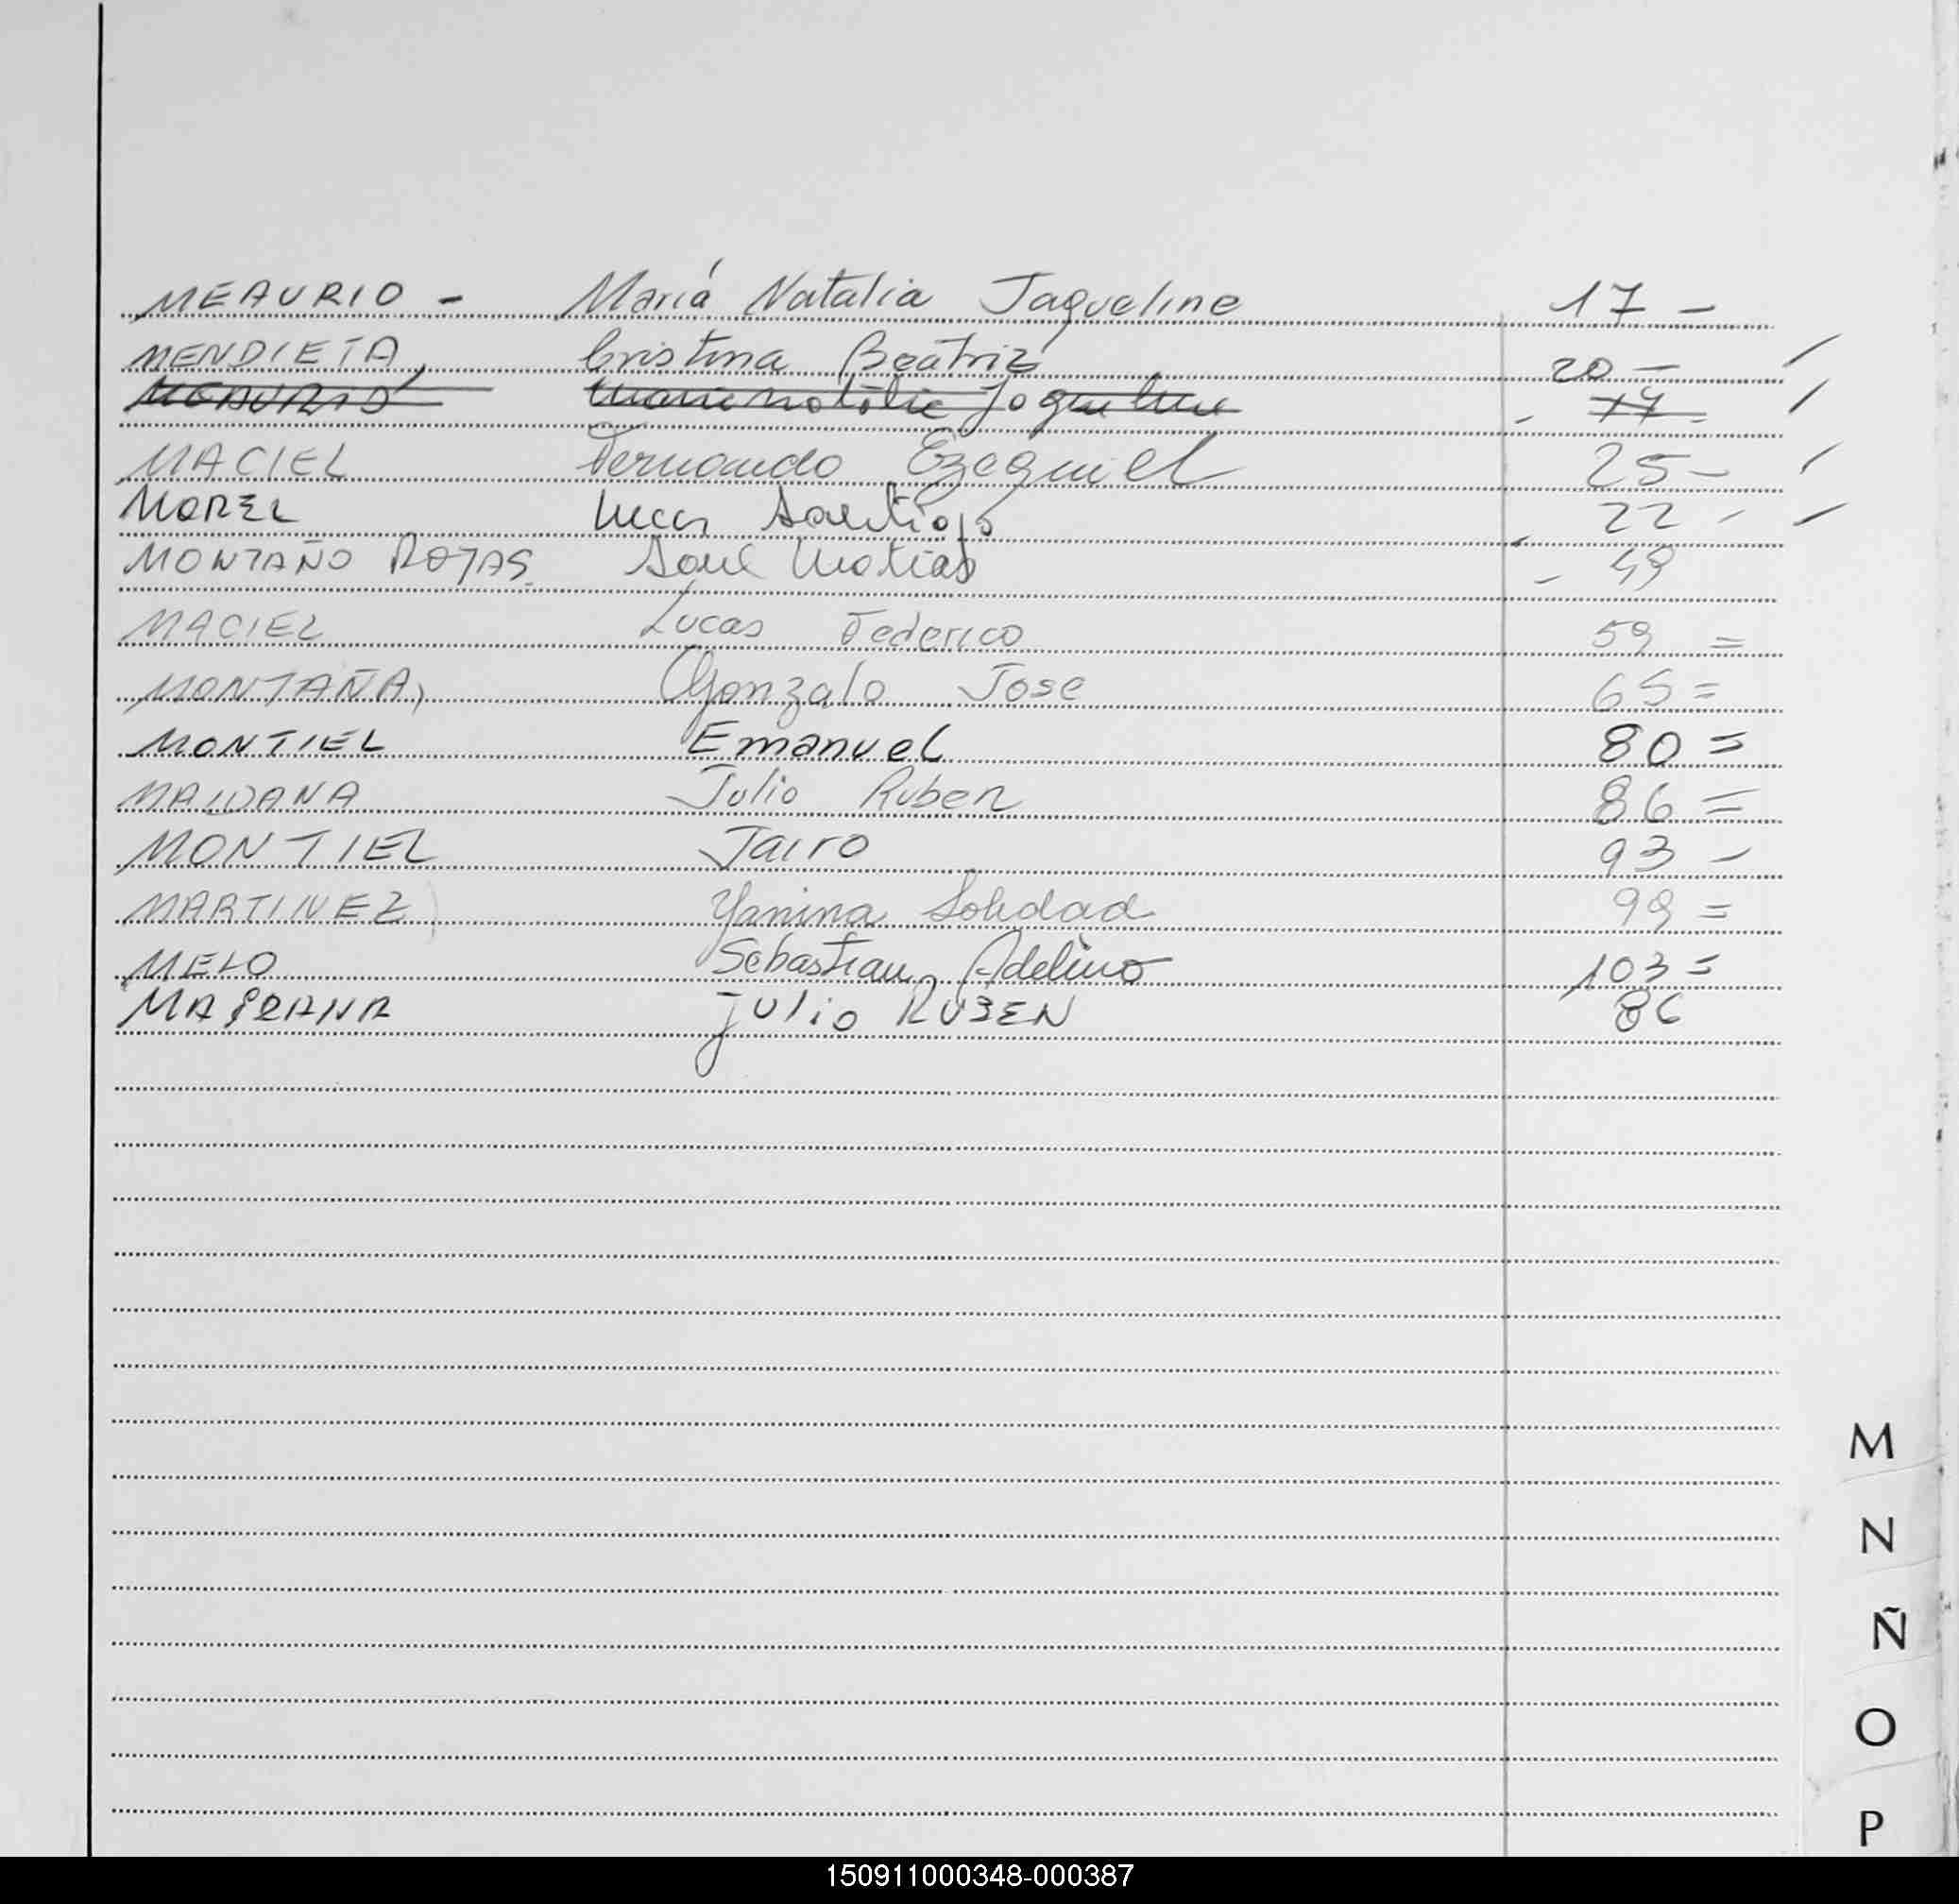 MEAURIO - María Natalia Jaqueline 17 -
MENDIETA, Cristina Beatriz 20 -
MEAURIO Maria Natalia Jaqueline 17 -
MACIEL Fernando Ezequiel 25 -
MOREL Lucas Santiago 22 -
MONTAÑO ROJAS Saul Matias - 49
MACIEL Lucas Federico 59 =
MONTAÑA, Gonzalo Jose 65 =
MONTIEL Emanuel 80 =
MAIDANA Julio Ruben 86 =
MONTIEL Jairo 93 -
MARTINEZ Yanina Soledad 99 =
MELO Sebastian Adelino 103 =
Julio RUBEN 86
M
N
Ñ
O
P
150911000348-000387